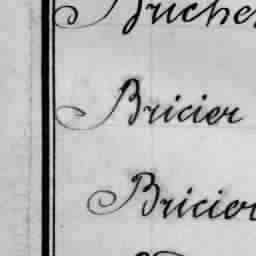 Bricier
Bricier